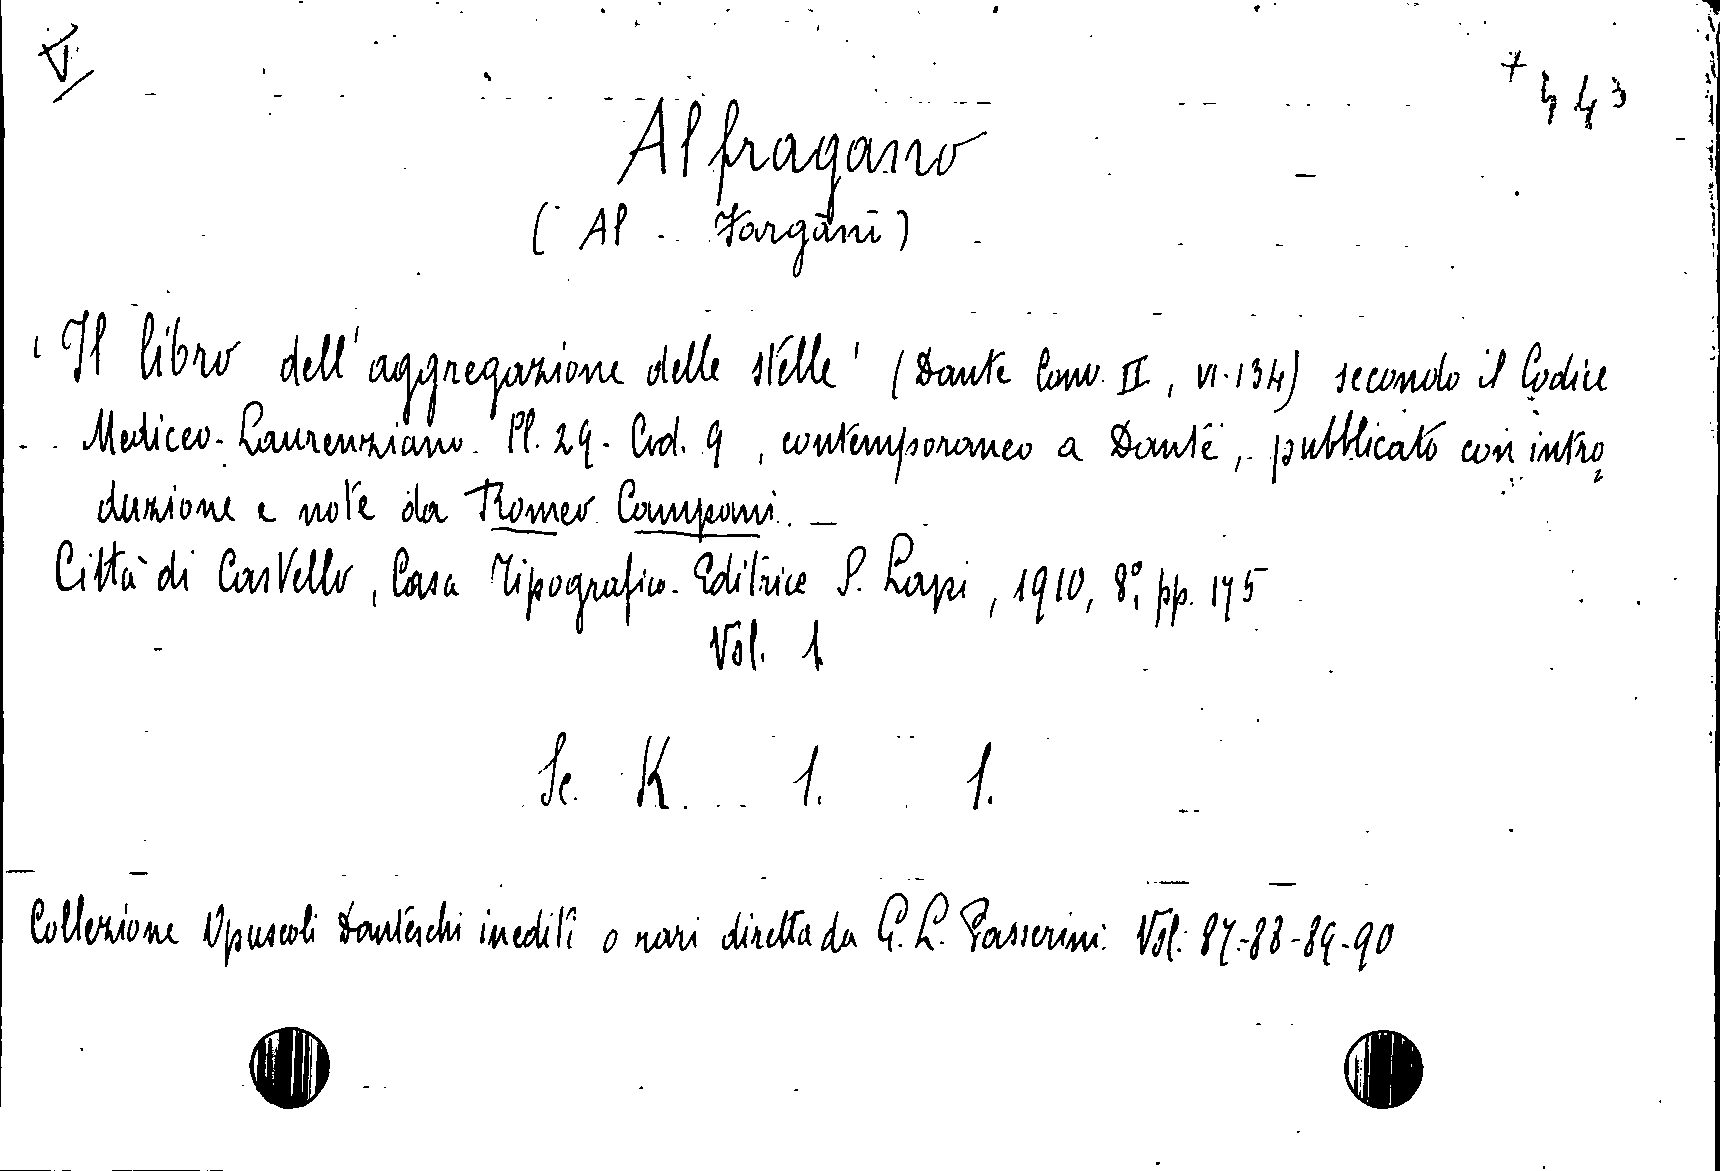 V
+ 443
Alfragano
(Al - Fargānī)
'Il libro dell'aggregazione delle stelle' (Dante Conv. II, VI-134) secondo il Codice
Mediceo-Laurenziano Pl. 29 - Cod. 9, contemporaneo a Dante, pubblicato con intro
duzione e note da Romeo Campani. —
Città di Castello, Casa Tipografico-Editrice S. Lapi, 1910, 8°, pp. 175
Vol. 1
Sc. K 1. 1.
Collezione Opuscoli Danteschi inediti o rari diretta da G. L. Passerini: Vol: 87-88-89-90